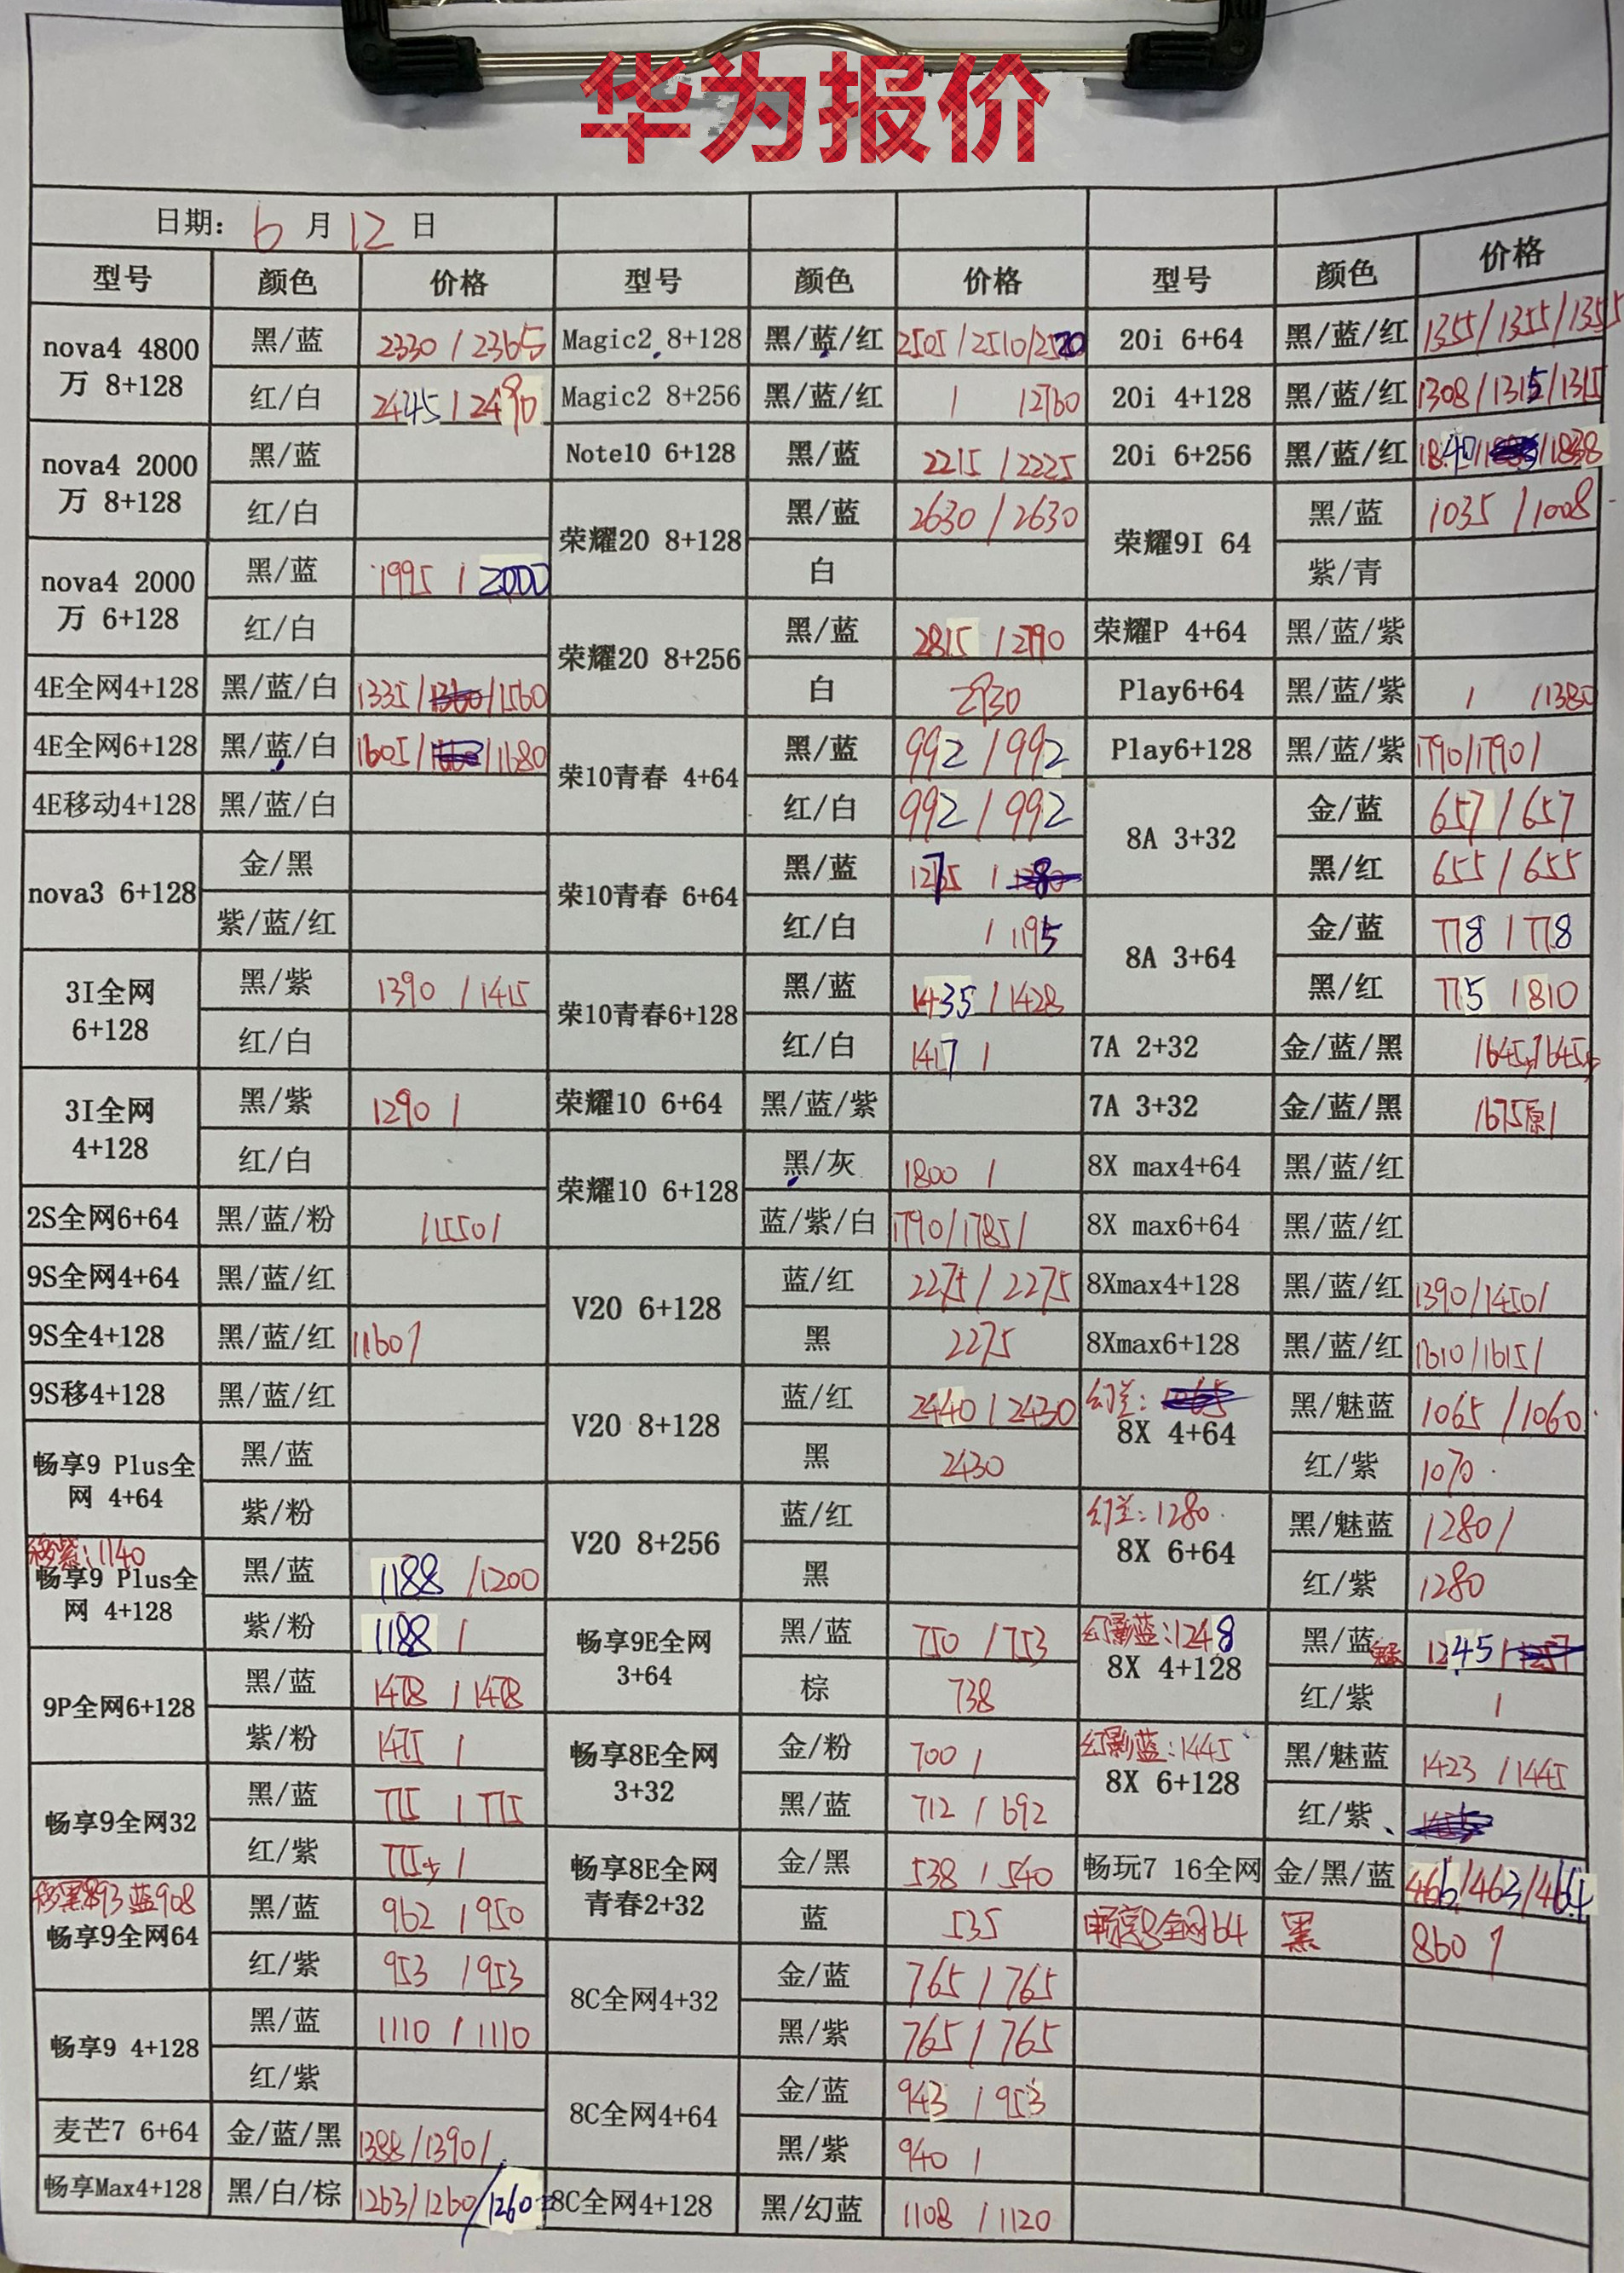 华为报价
日期: 6 月 12 日
型号 颜色 价格 型号 颜色 价格 型号 颜色 价格
nova4 4800万 8+128 黑/蓝 2330 / 2365 Magic2 8+128 黑/蓝/红 2505 / 2510 / 2520 20i 6+64 黑/蓝/红 1355 / 1355 / 1355
红/白 2445 / 2490 Magic2 8+256 黑/蓝/红 / /2760 20i 4+128 黑/蓝/红 1308 / 1315 / 1315
nova4 2000万 8+128 黑/蓝 Note10 6+128 黑/蓝 2215 / 2225 20i 6+256 黑/蓝/红 1840 / / 1838
红/白 荣耀20 8+128 黑/蓝 2630 / 2630 荣耀9I 64 黑/蓝 1035 / 1008
nova4 2000万 6+128 黑/蓝 1995 / 2000 白 紫/青
红/白 荣耀20 8+256 黑/蓝 2815 / 2790 荣耀P 4+64 黑/蓝/紫
4E全网4+128 黑/蓝/白 1335 / / 1560 白 2930 Play6+64 黑/蓝/紫 / / 1380
4E全网6+128 黑/蓝/白 1605 / / 1680 荣10青春 4+64 黑/蓝 992 / 992 Play6+128 黑/蓝/紫 1790 / 1790 /
4E移动4+128 黑/蓝/白 红/白 992 / 992 8A 3+32 金/蓝 657 / 657
nova3 6+128 金/黑 荣10青春 6+64 黑/蓝 1275 / 黑/红 655 / 655
紫/蓝/红 红/白 / 1195 8A 3+64 金/蓝 778 / 778
3I全网 6+128 黑/紫 1390 / 1415 荣10青春6+128 黑/蓝 1435 / 1428 黑/红 775 / 810
红/白 红/白 1417 / 7A 2+32 金/蓝/黑 /645 /645
3I全网 4+128 黑/紫 1290 / 荣耀10 6+64 黑/蓝/紫 7A 3+32 金/蓝/黑 /675原/
红/白 荣耀10 6+128 黑/灰 1800 / 8X max4+64 黑/蓝/红
2S全网6+64 黑/蓝/粉 /1550/ 蓝/紫/白 1790 / 1785 / 8X max6+64 黑/蓝/红
9S全网4+64 黑/蓝/红 V20 6+128 蓝/红 2275 / 2275 8Xmax4+128 黑/蓝/红 1390 / 1450 /
9S全4+128 黑/蓝/红 1160 / 黑 2275 8Xmax6+128 黑/蓝/红 1610 / 1615 /
9S移4+128 黑/蓝/红 V20 8+128 蓝/红 2440 / 2430 幻兰: 8X 4+64 黑/魅蓝 1065 / 1060
畅享9 Plus全网 4+64 黑/蓝 黑 2430 红/紫 1070
紫/粉 V20 8+256 蓝/红 幻兰: 1280 8X 6+64 黑/魅蓝 1280 /
移紫: 1140 畅享9 Plus全网 4+128 黑/蓝 1188 / 1200 黑 红/紫 1280
紫/粉 1188 / 畅享9E全网 3+64 黑/蓝 750 / 753 幻影蓝: 1248 8X 4+128 黑/蓝 1245 /
9P全网6+128 黑/蓝 1478 / 1478 棕 738 红/紫 /
紫/粉 1475 / 畅享8E全网 3+32 金/粉 700 / 幻影蓝: 1445 8X 6+128 黑/魅蓝 1423 / 1445
畅享9全网32 黑/蓝 775 / 775 黑/蓝 712 / 692 红/紫
红/紫 775 / 畅享8E全网 青春2+32 金/黑 538 / 540 畅玩7 16全网 金/黑/蓝 466 / 463 / 464
移黑893 蓝908 畅享9全网64 黑/蓝 962 / 950 蓝 535 畅享8全网64 黑 860 /
红/紫 953 / 953 8C全网4+32 金/蓝 765 / 765
畅享9 4+128 黑/蓝 1110 / 1110 黑/紫 765 / 765
红/紫 8C全网4+64 金/蓝 943 / 953
麦芒7 6+64 金/蓝/黑 1388 / 1390 / 黑/紫 940 /
畅享Max4+128 黑/白/棕 1263 / 1260 / 1260 8C全网4+128 黑/幻蓝 1108 / 1120